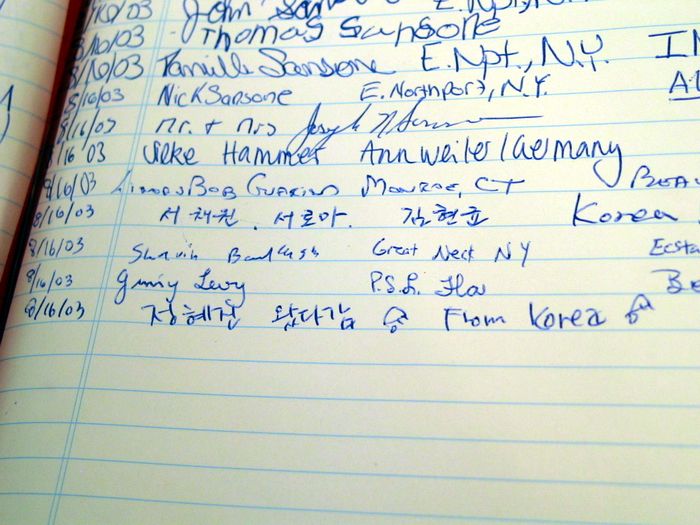 8/16/03 John
8/16/03 Thomas Sansone
8/16/03 Camille Sansone E. Npt., N.Y. IN
8/16/03 Nick Sansone E. Northport, N.Y.
8/16/03 Mr. + Mrs Joseph
8/16/03 Hammer Annweiler/Germany
8/16/03 Bob Monroe, CT
8/16/03 서채원. 서로마. 김현준 Korea
8/16/03 Great Neck NY Ecsta
8/16/03 Ginny Levy P.S.L. Fla Be
8/16/03 정혜진 왔다감 From Korea